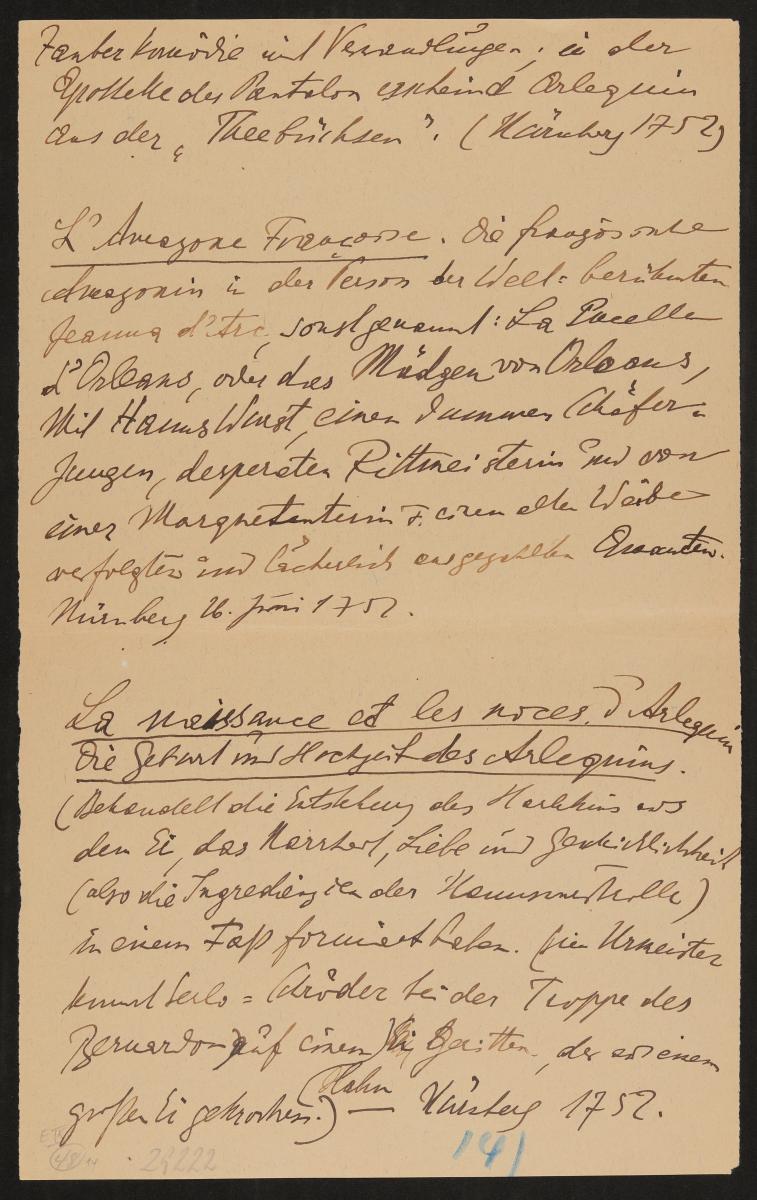 Zauber Komödie mit Verwandlungen; in der
Apotheke des Pantalon erscheint Arlequin
aus der „Theebüchsen". (Nürnberg 1752)
L'Amazone Françoise. Die französische
Amazonin in der Person der Welt=berühmten
Jeanna d'Arc, sonst genannt: La Pucelle
d'Orleans, oder das Mädgen von Orleans,
Mit Hanns Wurst, einen dummen Schäfer=
Jungen, desperaten Rittmeisterin und von
einer Marquetenterin u. einem alten Weibe
verfolgten und lächerlich Amanten.
Nürnberg 26. Juni 1752.
La naissance et les noces d'Arlequin
Die Geburt und Hochzeit des Arlequins.
(Behandelt die Entstehung des Harlekins aus
dem Ei, das Narrheit, Liebe und
(also die Ingredienzien der)
in einem Faß formiert haben. Urmeister
kommt = Schröder bei der Troppe des
Bernardon auf einem, der aus einem
großen Ei gekrochen.) (Hahn — Nürnberg 1752.
29222
141